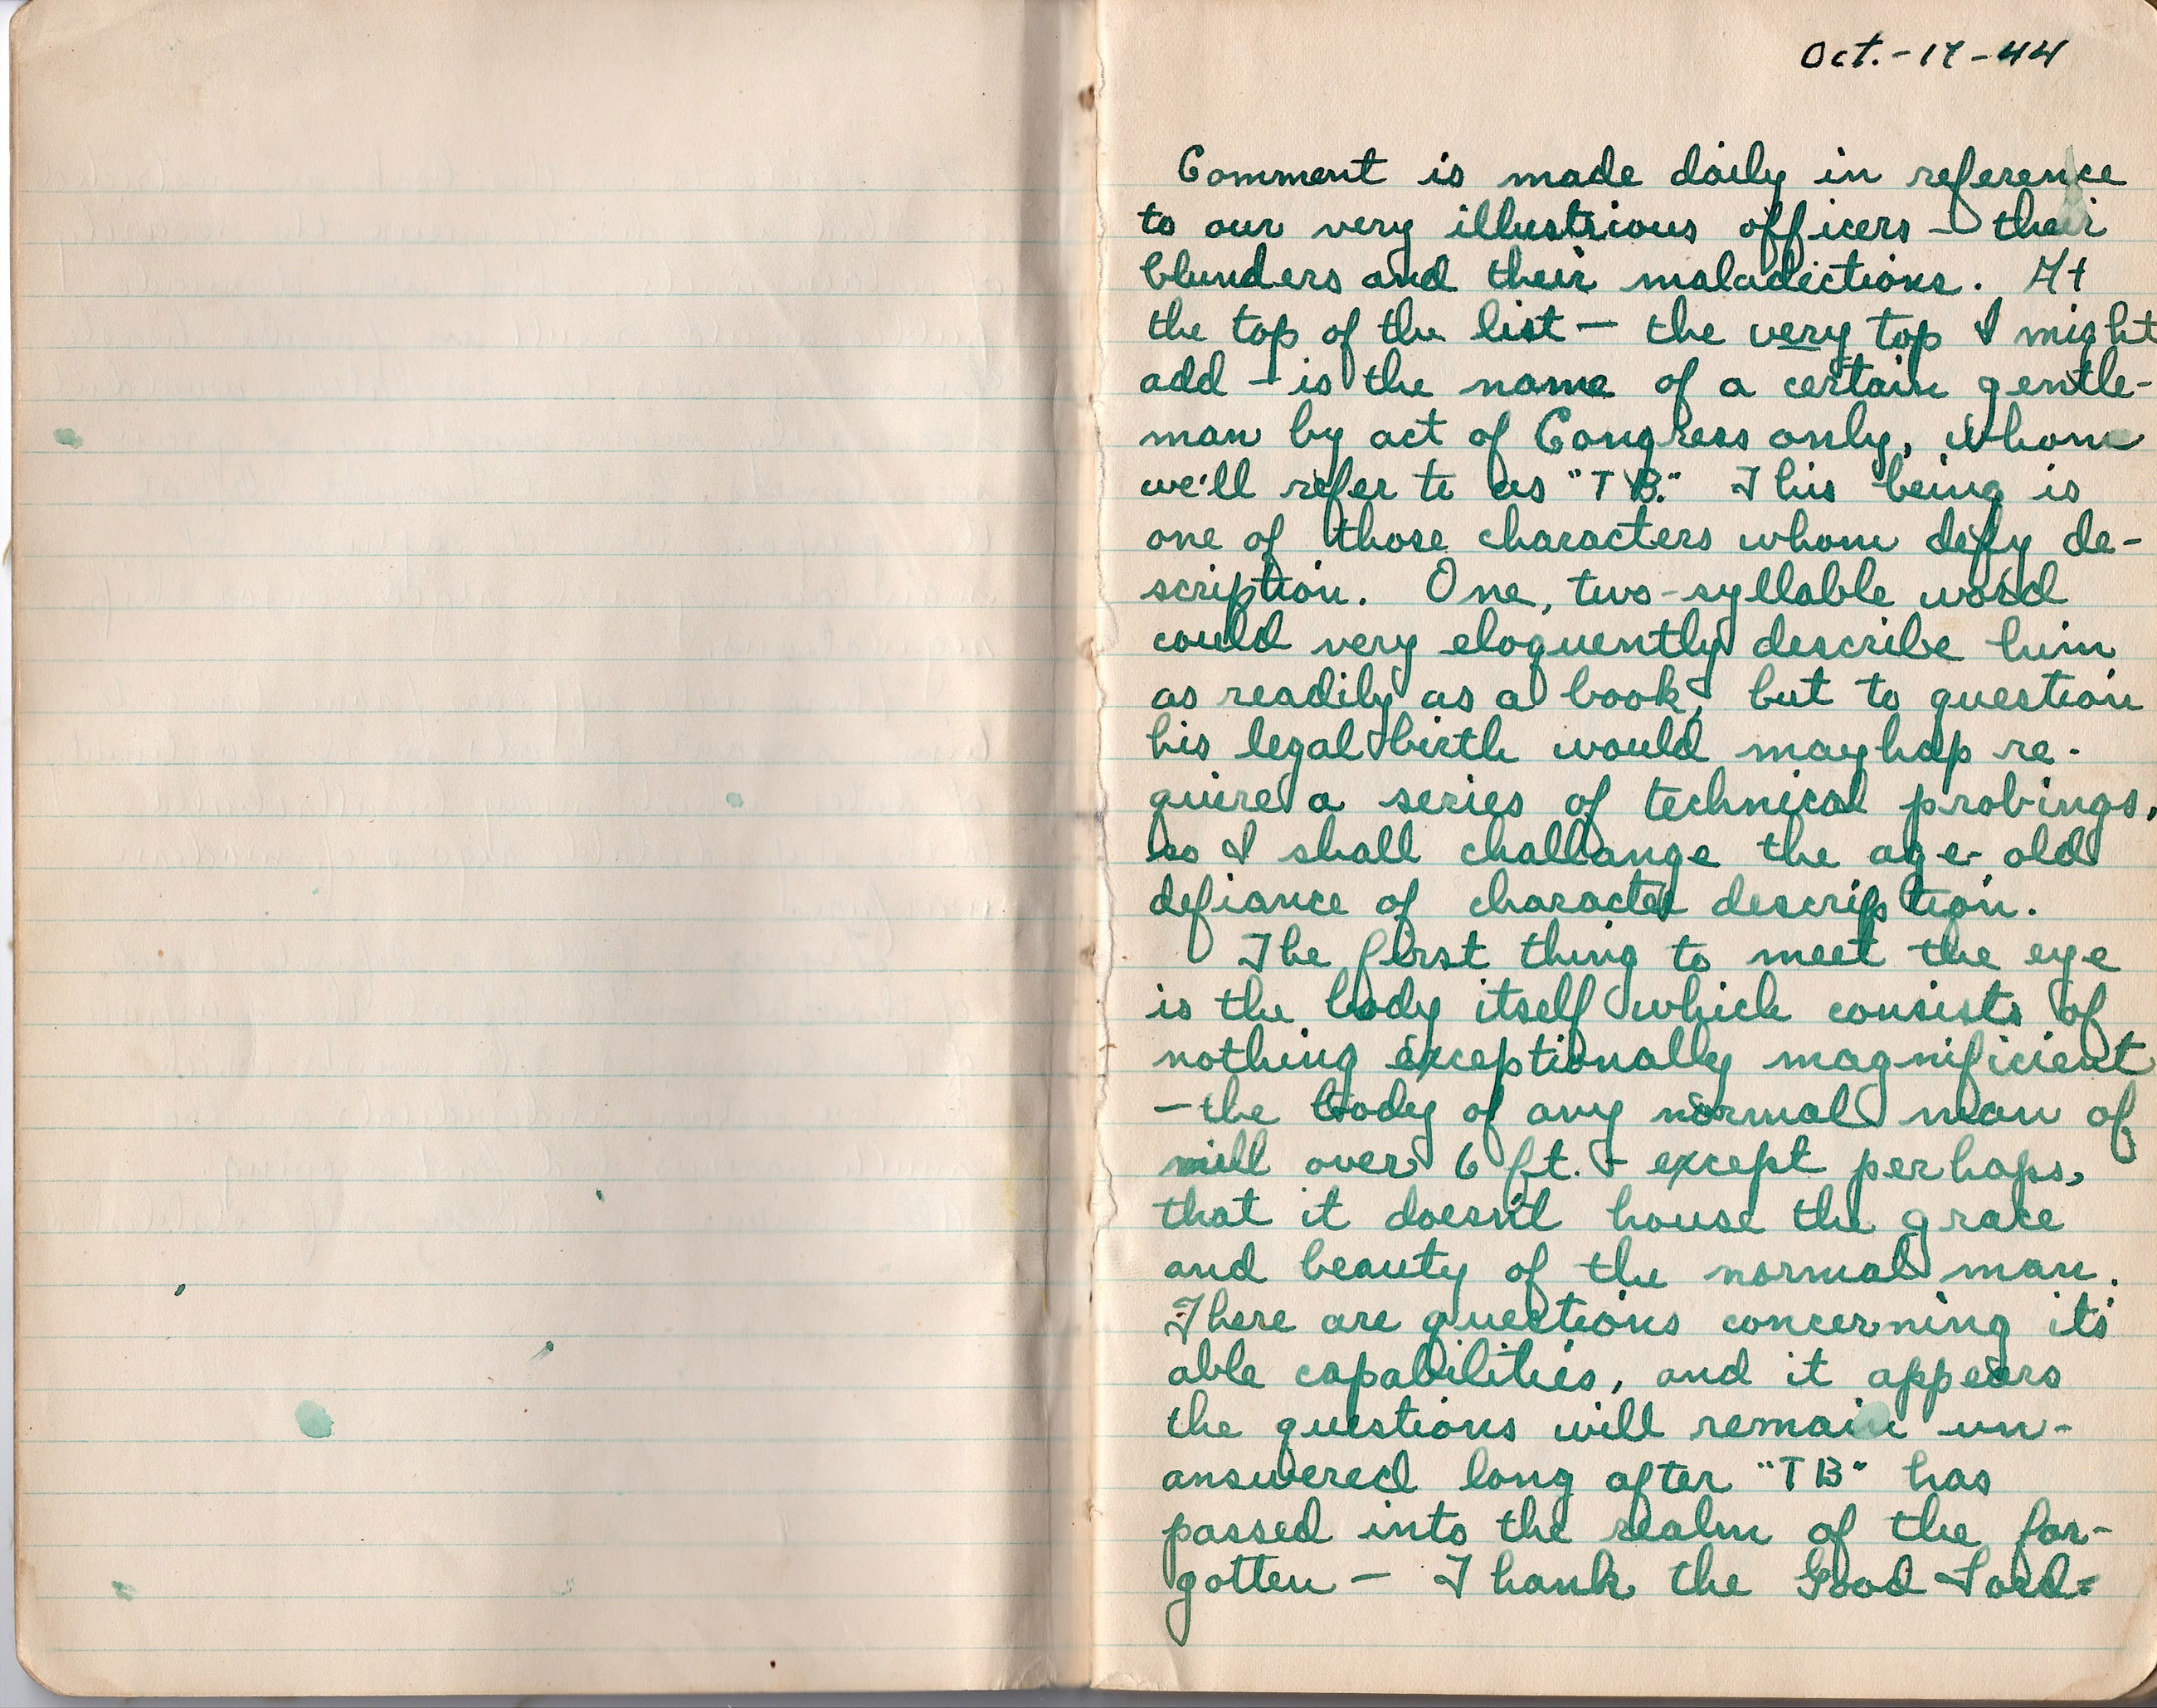 Oct.-17-44
Comment is made daily in reference
to our very illustrious officers - their
blunders and their maladictions. At
the top of the list - the very top I might
add - is the name of a certain gentle-
man by act of Congress only, whom
we'll refer to as "T B." This being is
one of those characters whom defy de-
scription. One, two-syllable word
could very eloquently describe him
as readily as a book, but to question
his legal birth would mayhap re-
quire a series of technical probings,
so I shall challange the age-old
defiance of character description.
The first thing to meet the eye
is the body itself which consists of
nothing exceptionally magnificient
- the body of any normal man of
well over 6 ft. - except perhaps,
that it doesn't house the grace
and beauty of the normal man.
There are questions concerning its'
able capabilities, and it appears
the questions will remain un-
answered long after "T B" has
passed into the realm of the for-
gotten - Thank the Good Lord-